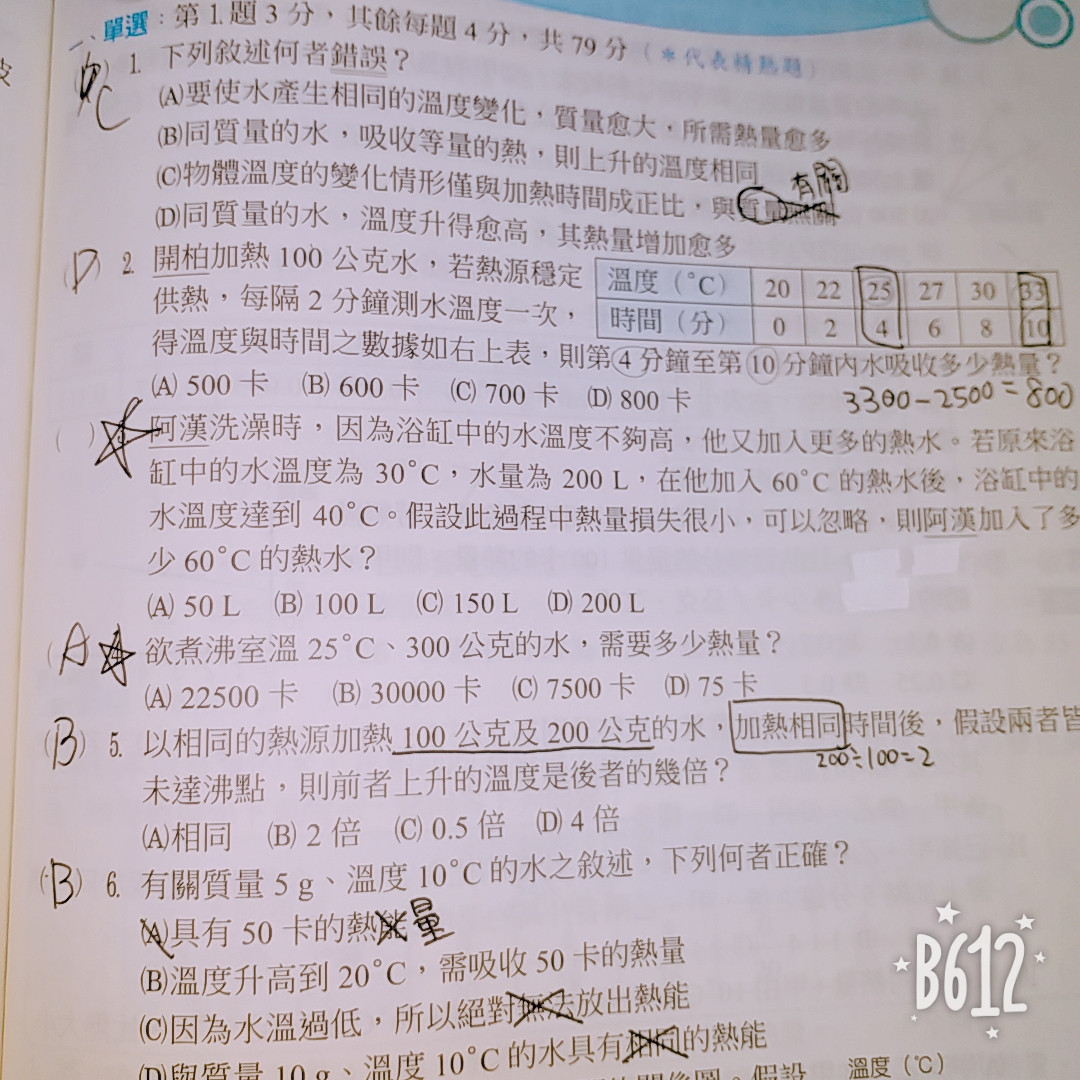 一、單選：第1.題3分，其餘每題4分，共79分（＊代表精熟題）
(C) 1. 下列敘述何者錯誤？
(A)要使水產生相同的溫度變化，質量愈大，所需熱量愈多
(B)同質量的水，吸收等量的熱，則上升的溫度相同
(C)物體溫度的變化情形僅與加熱時間成正比，與質量無關 有關
(D)同質量的水，溫度升得愈高，其熱量增加愈多
(D) 2. 開柏加熱 100 公克水，若熱源穩定
供熱，每隔 2 分鐘測水溫度一次，
溫度（°C） 20 22 25 27 30 33
時間（分） 0 2 4 6 8 10
得溫度與時間之數據如右上表，則第 4 分鐘至第 10 分鐘內水吸收多少熱量？
(A) 500 卡 (B) 600 卡 (C) 700 卡 (D) 800 卡
3300-2500=800
( ) 阿漢洗澡時，因為浴缸中的水溫度不夠高，他又加入更多的熱水。若原來浴
缸中的水溫度為 30°C，水量為 200 L，在他加入 60°C 的熱水後，浴缸中的
水溫度達到 40°C。假設此過程中熱量損失很小，可以忽略，則阿漢加入了多
少 60°C 的熱水？
(A) 50 L (B) 100 L (C) 150 L (D) 200 L
(A) 欲煮沸室溫 25°C、300 公克的水，需要多少熱量？
(A) 22500 卡 (B) 30000 卡 (C) 7500 卡 (D) 75 卡
(B) 5. 以相同的熱源加熱 100 公克及 200 公克的水，加熱相同時間後，假設兩者皆
200÷100=2
未達沸點，則前者上升的溫度是後者的幾倍？
(A)相同 (B) 2 倍 (C) 0.5 倍 (D) 4 倍
(B) 6. 有關質量 5 g、溫度 10°C 的水之敘述，下列何者正確？
(A)具有 50 卡的熱能 量
(B)溫度升高到 20°C，需吸收 50 卡的熱量
(C)因為水溫過低，所以絕對無法放出熱能
(D)與質量 10 g、溫度 10°C 的水具有相同的熱能
假設 溫度（°C）
B612